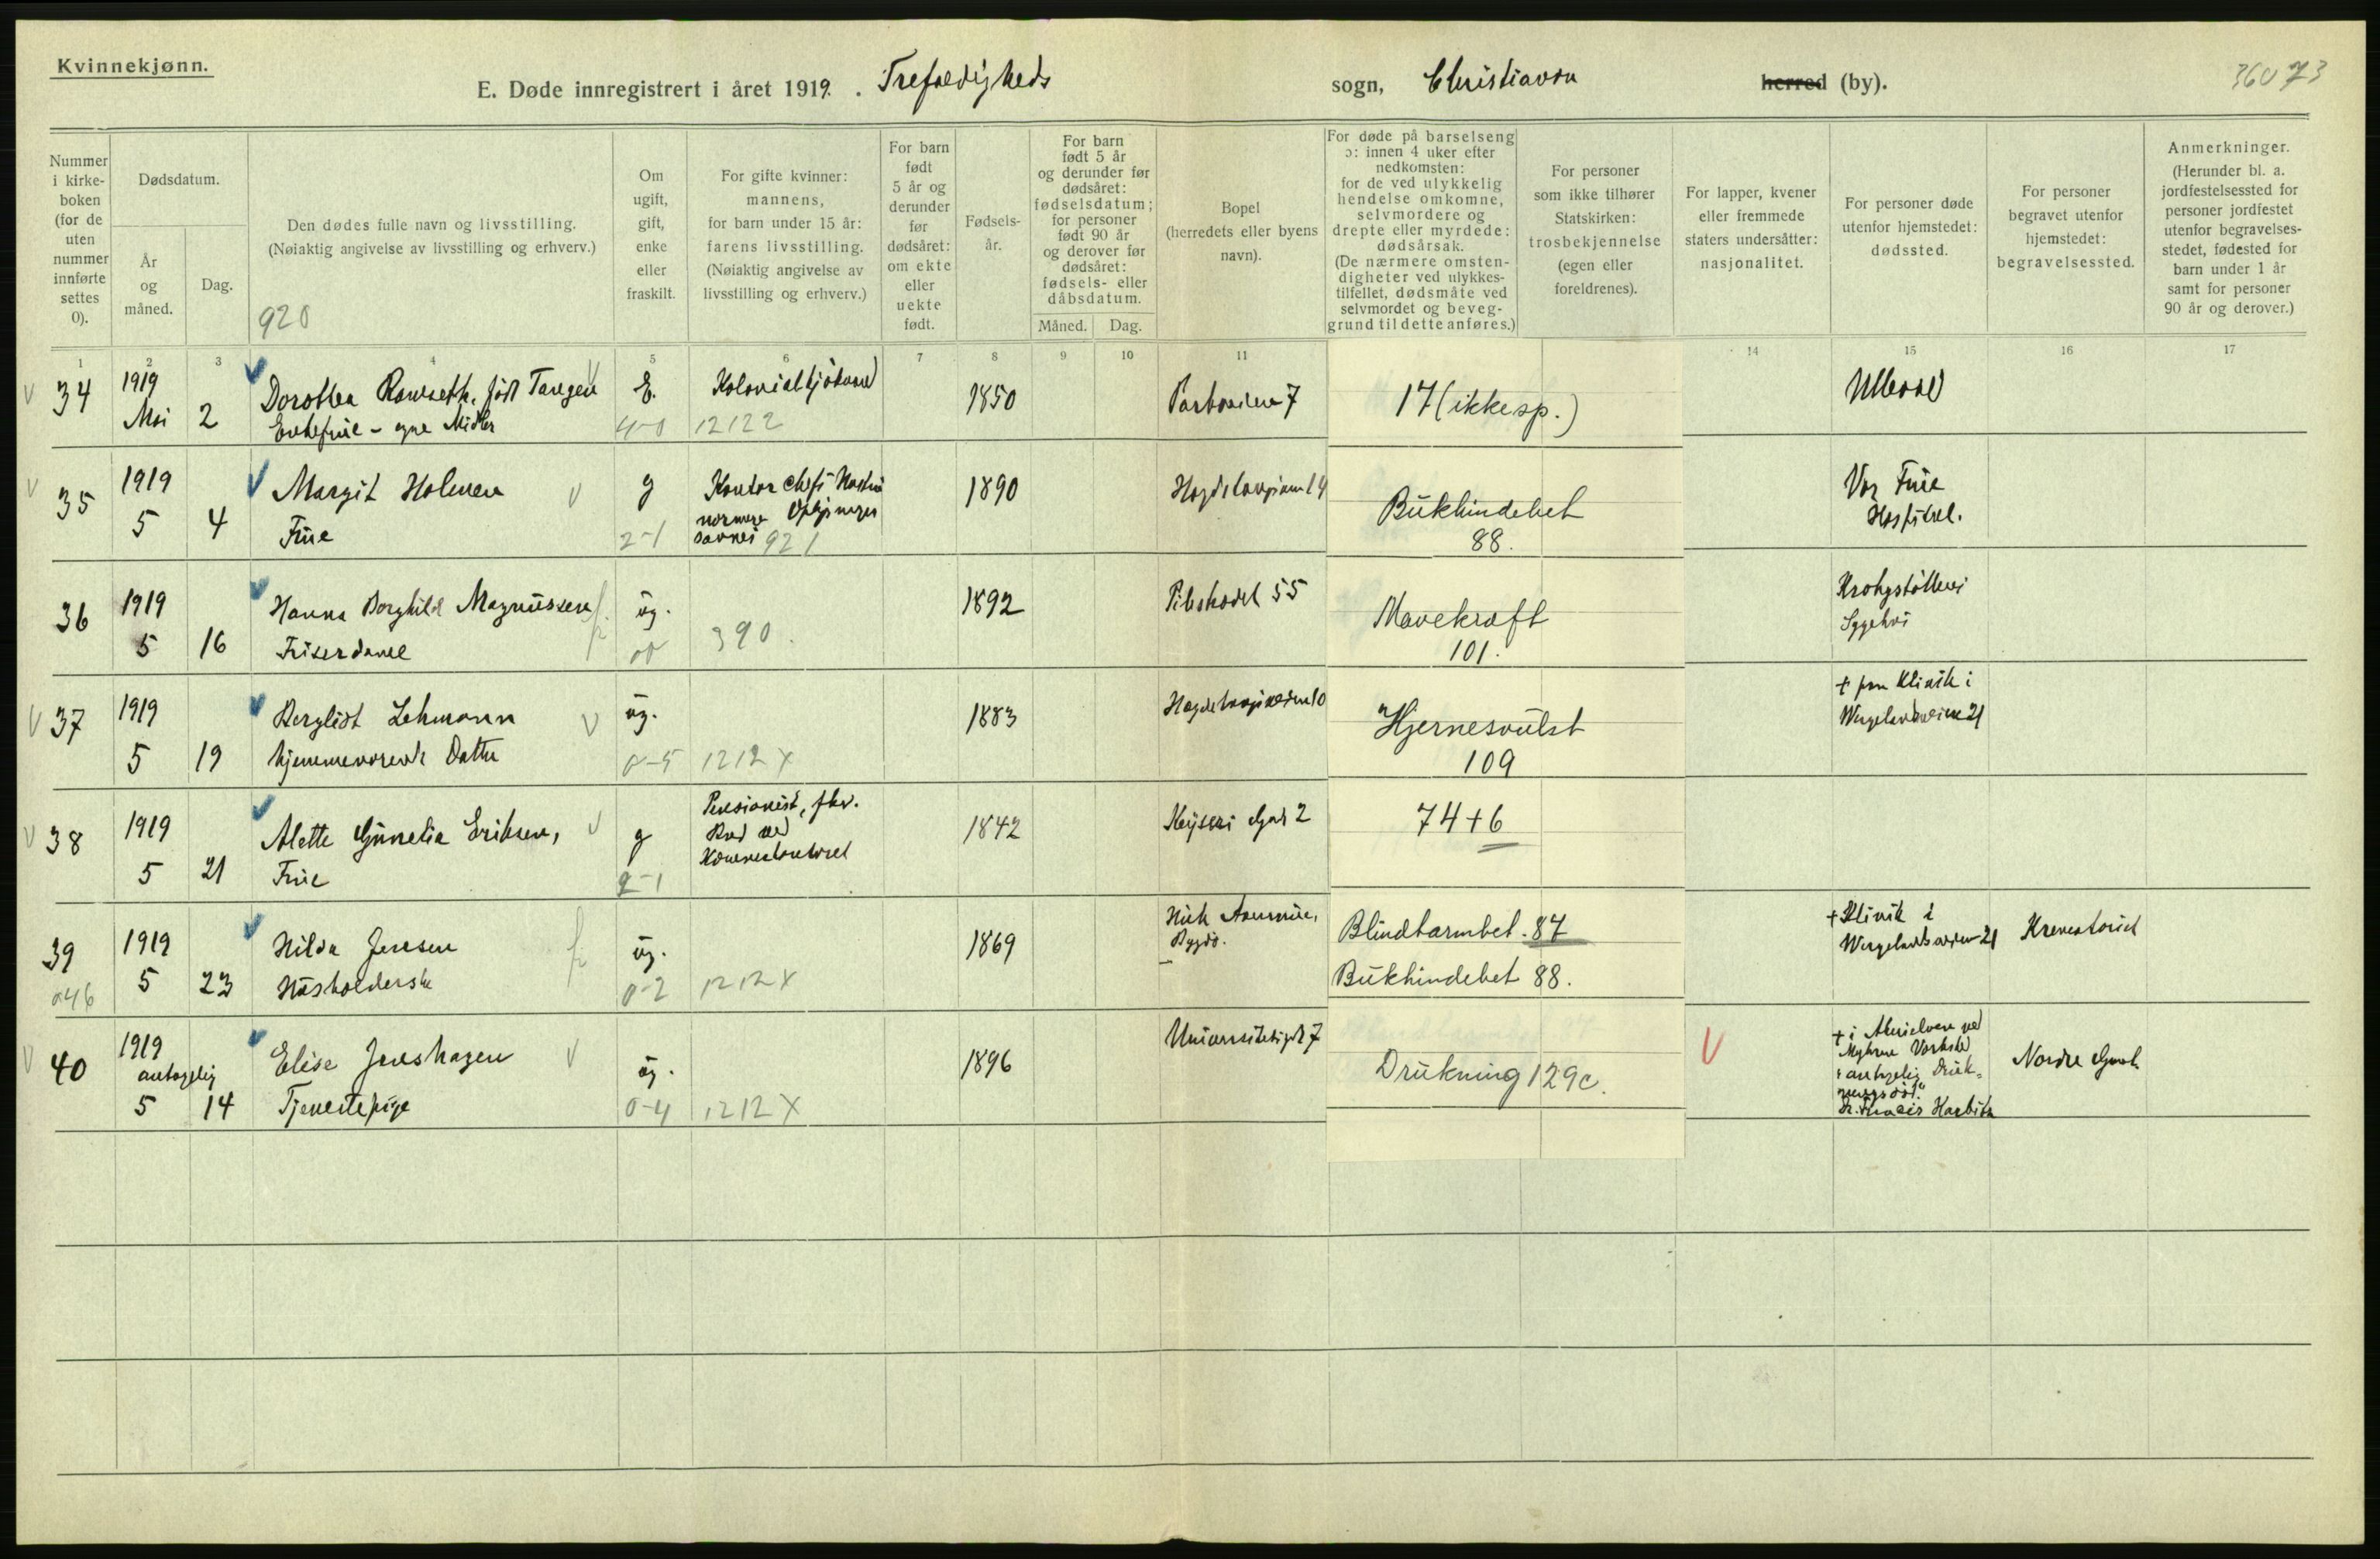 Kvinnekjønn.
E. Døde innregistrert i året 1919. Trefoldigheds sogn, Christiania herred (by). 360 73
Nummer i kirkeboken (for de uten nummer innførte settes 0).
Dødsdatum.
År og måned.
Dag.
Den dødes fulle navn og livsstilling.
(Nøiaktig angivelse av livsstilling og erhverv.)
920
Om ugift, gift, enke eller fraskilt.
For gifte kvinner: mannens, for barn under 15 år: farens livsstilling.
(Nøiaktig angivelse av livsstilling og erhverv.)
For barn født 5 år og derunder før dødsåret: om ekte eller uekte født.
Fødsels-år.
For barn født 5 år og derunder før dødsåret: fødselsdatum; for personer født 90 år og derover før dødsåret: fødsels- eller dåbsdatum.
Måned. Dag.
Bopel (herredets eller byens navn).
For døde på barselseng ɔ: innen 4 uker efter nedkomsten: for de ved ulykkelig hendelse omkomne, selvmordere og drepte eller myrdede: dødsårsak.
(De nærmere omsten-digheter ved ulykkes-tilfellet, dødsmåte ved selvmordet og beveg-grund til dette anføres.)
For personer som ikke tilhører Statskirken: trosbekjennelse (egen eller foreldrenes).
For lapper, kvener eller fremmede staters undersåtter: nasjonalitet.
For personer døde utenfor hjemstedet: dødssted.
For personer begravet utenfor hjemstedet: begravelsessted.
Anmerkninger.
(Herunder bl. a. jordfestelsessted for personer jordfestet utenfor begravelses-stedet, fødested for barn under 1 år samt for personer 90 år og derover.)
1 2 3 4 5 6 7 8 9 10 11 14 15 16 17
34 1919 Mai 2 Dorothea født Tangen E. 1850 7 17 (ikke sp.)
4-0 12122
35 1919 5 4 Margit Holmen Frue g Kontorchefs 1890 Bukhindebet 88. Vor Frue Hospital.
2-1 921
36 1919 5 16 Hanna Borghild Magnussen ug. 1892 Pilestrædet 55 Mavekræft 101. Krohgstøttens Sygehus
390.
37 1919 5 19 Bergliot Lehmann hjemmeværende Datter ug. 1883 Hjernesvulst 109 + paa Klinik i Wergelandsveien 21
0-5 1212 X
38 1919 5 21 Alette Eriksen, Frue g Pensionist, fhv. Bud ved 1842 Keysers Gad 2 74 + 6
2-1
39 1919 5 23 Hilda Jensen Husholderske ug. 1869 Bygdø. Blindtarmbet. 87 Bukhindebet 88. + Klinik i Wergelandsveien 21 Krematoriet
046 0-2 1212 X
40 1919 antagelig 5 14 Elise Jenshagen Tjenestepige ug. 1896 Universitetsgt 7 Drukning 129c. + i Akerselven ved Myhrens Værksted antagelig Druk-ningsdød Nordre Gravl.
0-4 1212 X